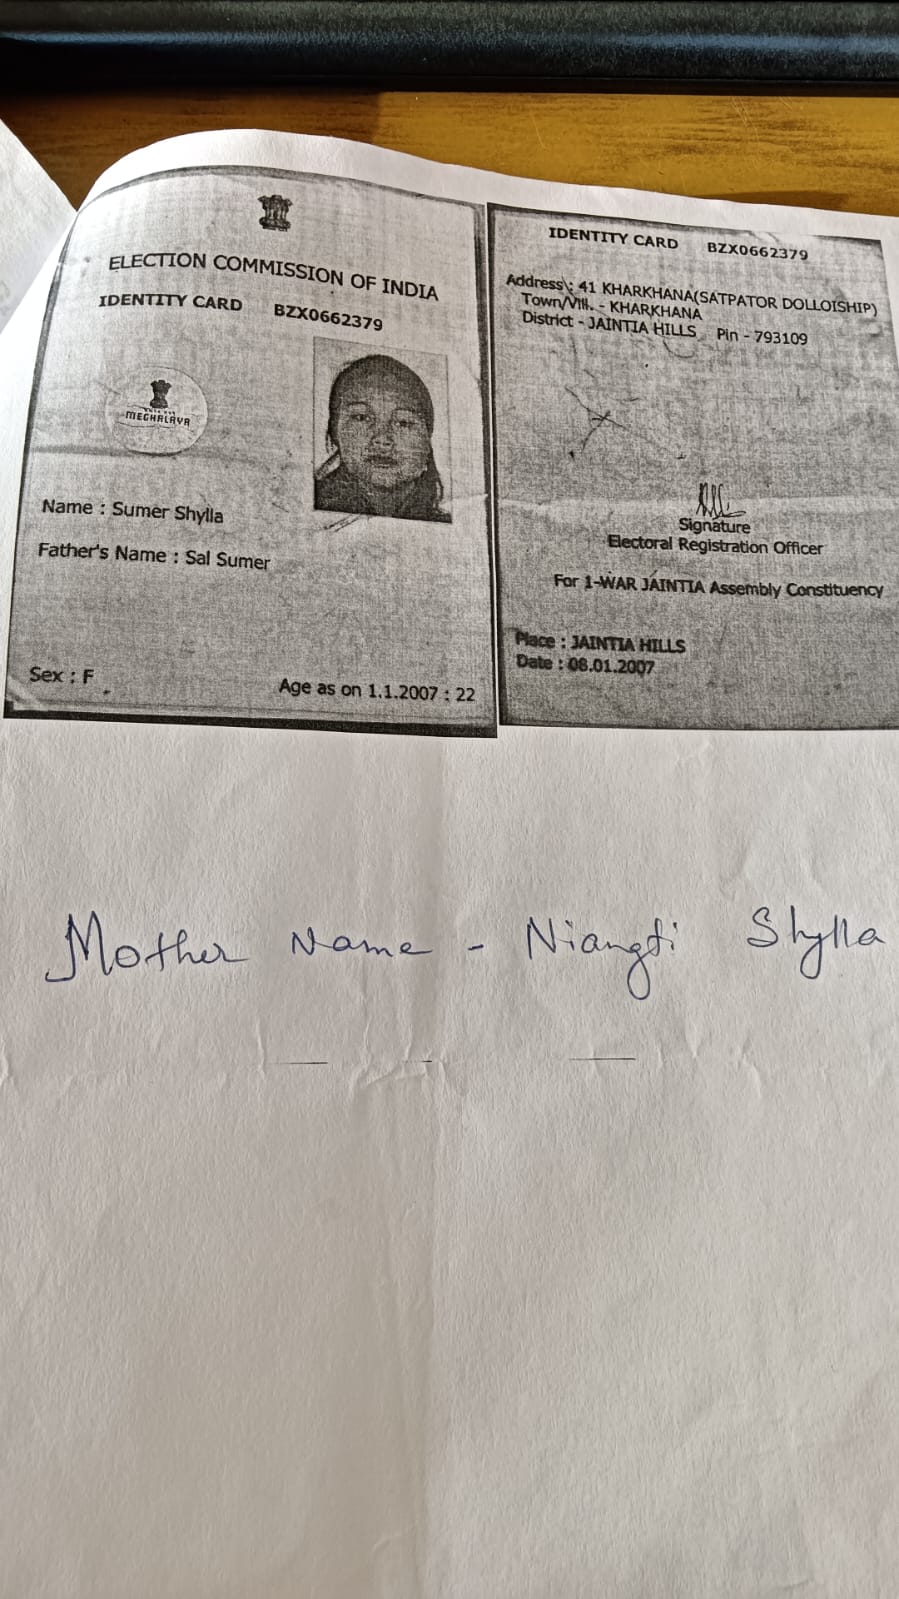 ELECTION COMMISSION OF INDIA
IDENTITY CARD BZX0662379
MEGHALAYA
Name : Sumer Shylla
Father's Name : Sal Sumer
Sex : F
Age as on 1.1.2007 : 22
IDENTITY CARD BZX0662379
Address : 41 KHARKHANA(SATPATOR DOLLOISHIP)
Town/Vill. - KHARKHANA
District - JAINTIA HILLS Pin - 793109
Signature
Electoral Registration Officer
For 1-WAR JAINTIA Assembly Constituency
Place : JAINTIA HILLS
Date : 08.01.2007
Mother Name - Niangti Shylla